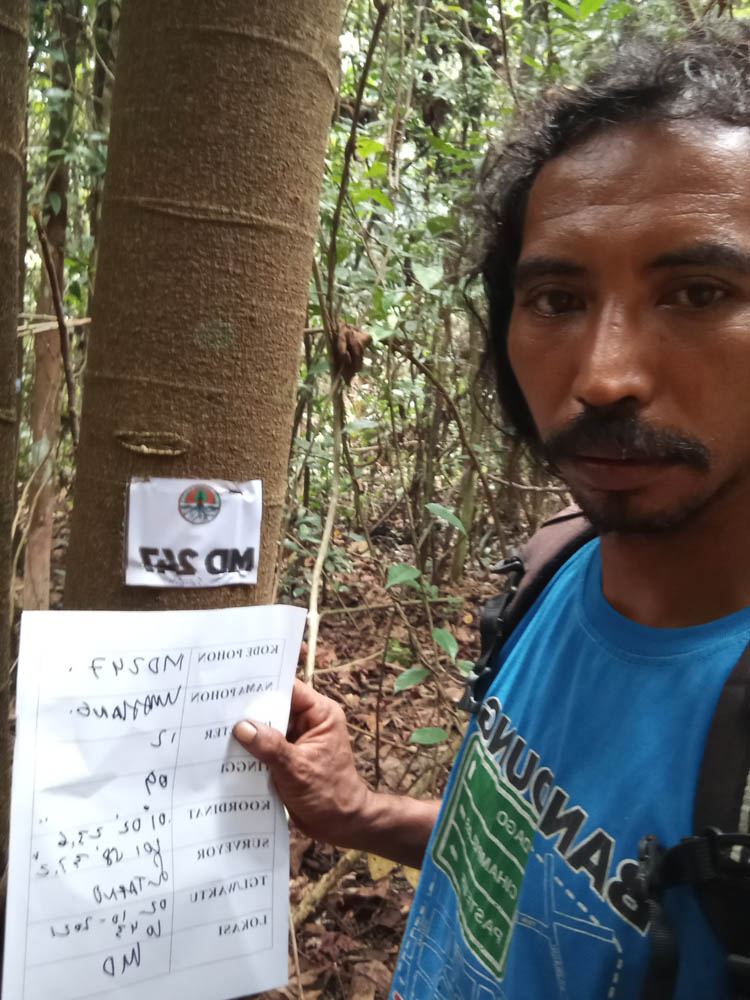 MD 247
KODE POHON MD247.
NAMA POHON
TER 12
TINGGI 09
KOORDINAT 01° 02' 23,6"
58' 37,2"
SURVEYOR
TGL/WAKTU 02-10-2021
10 43
LOKASI MD
BANDUNG
DAGO
CIHAMPELAS
PASTEU